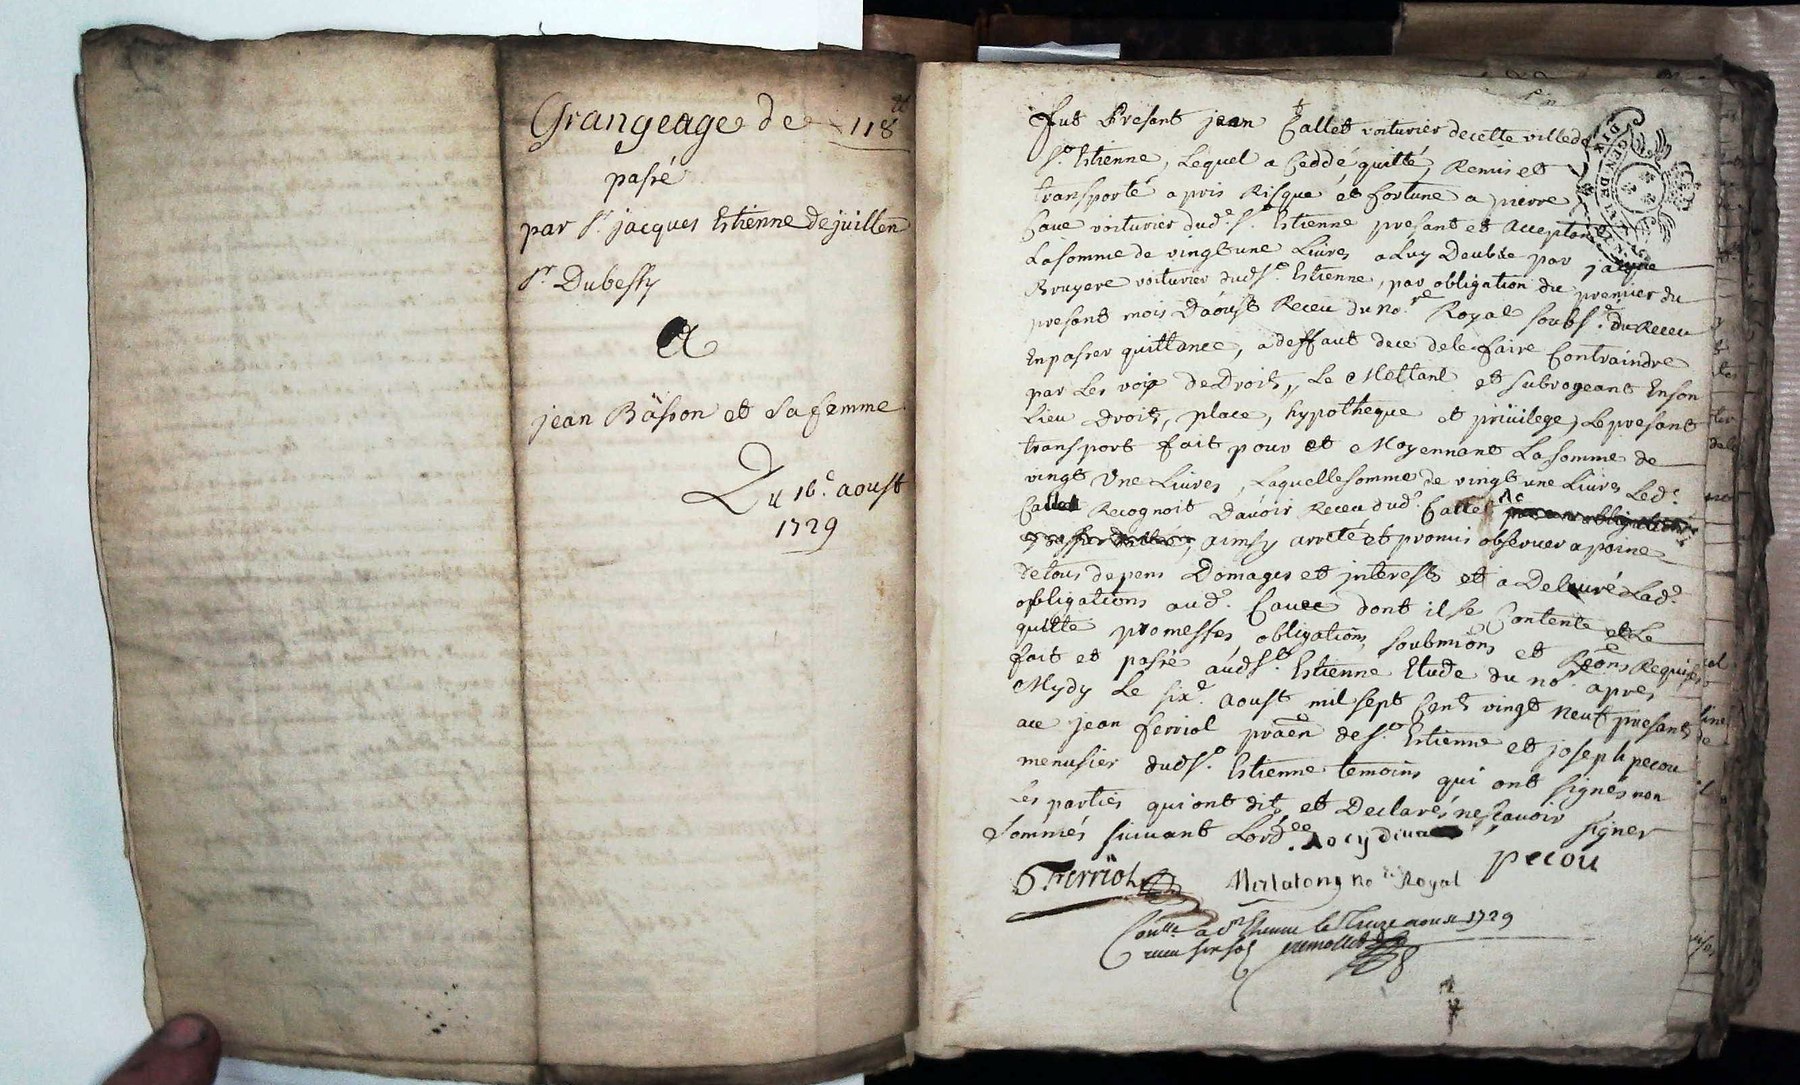 Grangeage de 118ᵗᵗ
passé
par Sʳ. jacques Estienne Dejuillen
Sʳ Dubessy
A
jean Basson et Sa femme
Du 16ᵉ. aoust
1729
fut Presant jean Callet voiturier de cette ville de
Sᵗ. Estienne, Lequel a Ceddé quitté, Remis et
transporté a pris Risque et fortune a pierre
Caue voiturier dud. Sᵗ. Estienne presant et acceptant
La somme de vingt une Livres a Luy Deubte par jacque
Bruyere voiturier dud Sᵗ. Estienne, par obligation du premier du
presant mois Daoust Receu du noʳᵉ Royal soubsᵉ. du Receu
En passer quittance, a deffaut de ce de le faire Contraindre
par Les voix de Droit, Le Mettant et subrogeant En son
Lieu Droit, place, hypotheque et privilege, Le presant
transport fait pour et Moyennant La somme de
vingt Une Livres, Laquelle somme de vingt une Livres Led.
Callet Recognoit Davoir Receu dud. Caue
ainsy arreté et promis observer a peine
de tous depens Domages et jnterests et a Delivré Lad.
obligations aud. Caue dont il se Contente et Le
quitte promesses obligations soubmions et Reons Requises
fait et passé aud Sᵗ. Estienne Etude du noʳᵉ apres
Mydy Le sixᵉ. aoust mil sept Cent vingt neuf presants
Mᵉ jean ferriol praen de Sᵗ. Estienne et joseph pecou
menusier dud Sᵗ. Estienne temoins qui ont signés non
Les parties qui ont dit et Declarés ne sçavoir signer
Sommés suivant Lordᶜᵉ.
Ferriol
noʳᵉ Royal
pecou
Conllé a Sᵗ Etienne le Treize aoust 1729
receu six sols